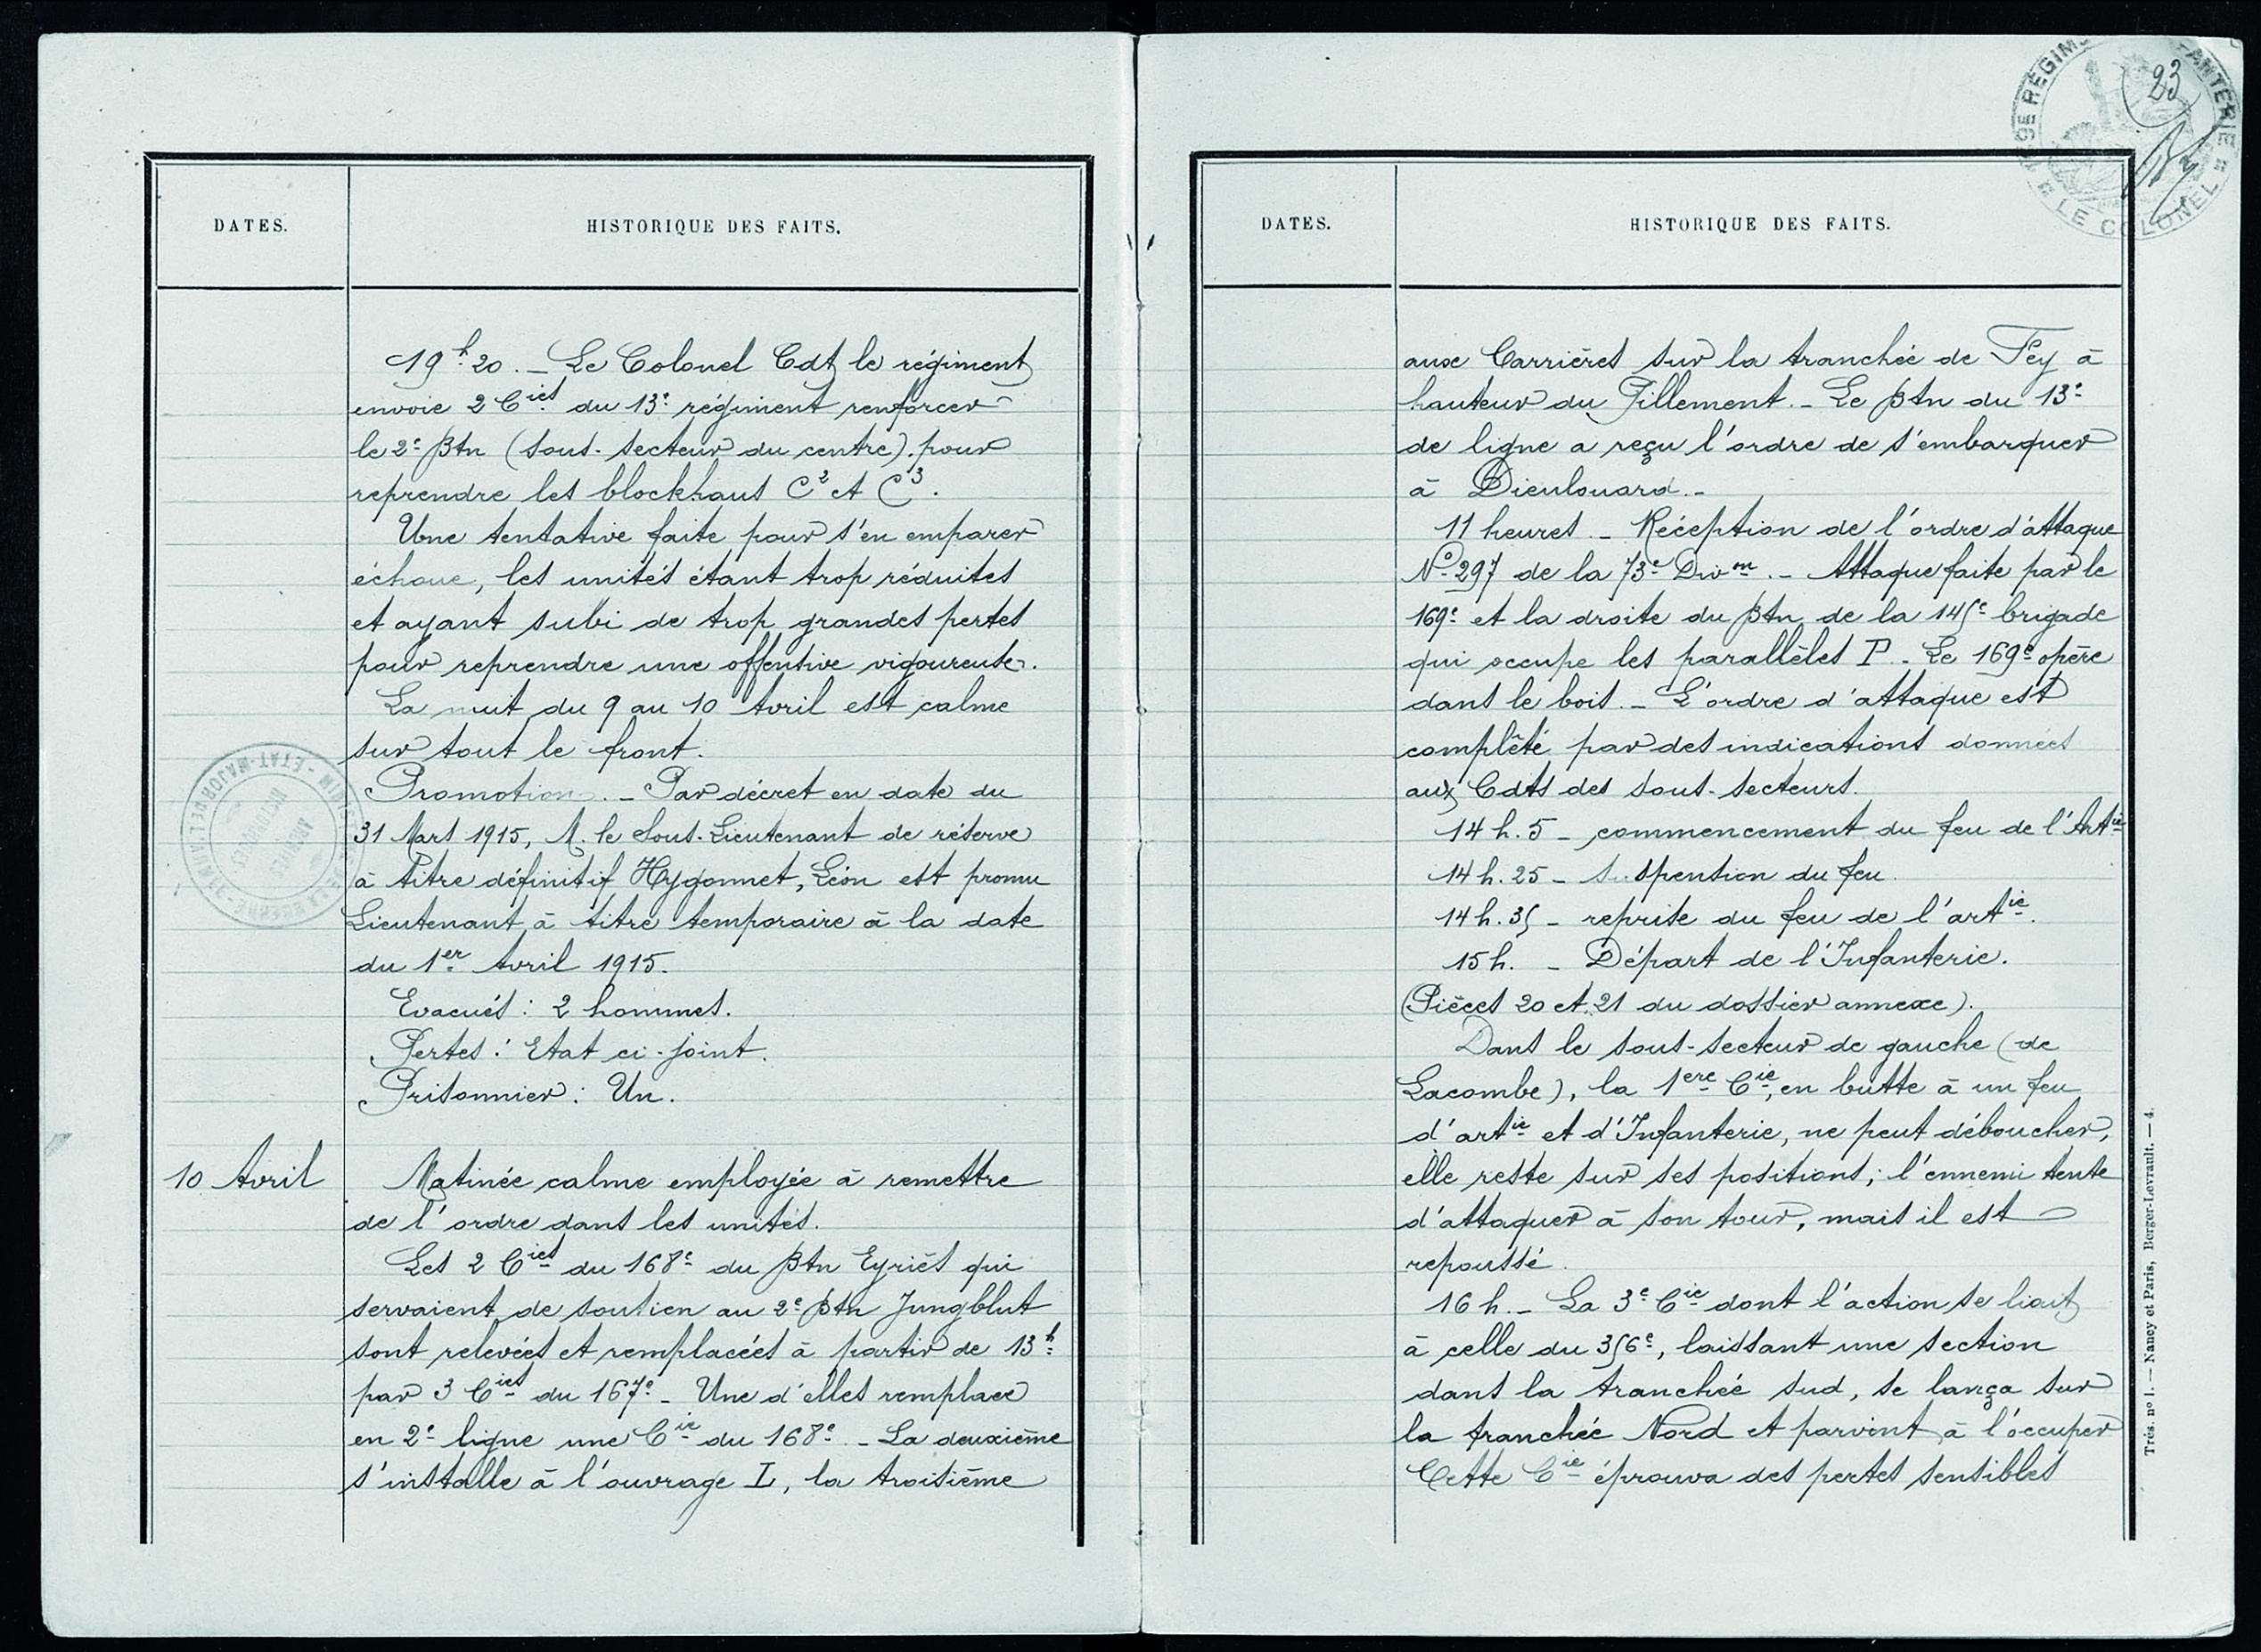 DATES.
HISTORIQUE DES FAITS.
19h 20. _ Le Colonel Cdt le régiment
envoie 2 Cies du 13e régiment renforcer
le 2e Btn (sous-secteur du centre). pour
reprendre les blockhaus C2 et C3.
Une tentative faite pour s'en emparer
échoue, les unités étant trop réduites
et ayant subi de trop grandes pertes
pour reprendre une offensive vigoureuse.
La nuit du 9 au 10 Avril est calme
sur tout le front.
Promotions. _ Par décret en date du
31 Mars 1915, M. le Sous-Lieutenant de réserve
à titre définitif Hygonnet, Léon est promu
Lieutenant à titre temporaire à la date
du 1er Avril 1915.
Evacués : 2 hommes.
Pertes : Etat ci-joint.
Prisonnier : Un.
10 Avril
Matinée calme employée à remettre
de l'ordre dans les unités.
Les 2 Cies du 168e du Btn Eyriès qui
servaient de soutien au 2e Btn Jungblut
sont relevées et remplacées à partir de 13h
par 3 Cies du 167e _ Une d'elles remplace
en 2e ligne une Cie du 168e _ La deuxième
s'installe à l'ouvrage L, la troisième
23
LE COLONEL
DATES.
HISTORIQUE DES FAITS.
aux Carrières sur la tranchée de Fey à
hauteur du Pillement. _ Le Btn du 13e
de ligne a reçu l'ordre de s'embarquer
à Dieulouard. _
11 heures _ Réception de l'ordre d'attaque
No 297 de la 73e Divon. _ Attaque faite par le
169e et la droite du Btn de la 145e brigade
qui occupe les parallèles P _ Le 169e opère
dans le bois. _ L'ordre d'attaque est
complèté par des indications données
aux Cdts des sous-secteurs.
14 h. 5 _ commencement du feu de l'Artie
14 h. 25 _ suspension du feu
14 h. 35 _ reprise du feu de l'artie.
15 h. _ Départ de l'Infanterie.
(Pièces 20 et 21 du dossier annexe).
Dans le sous-secteur de gauche (de
Lacombe), la 1ere Cie, en butte à un feu
d'artie et d'Infanterie, ne peut déboucher,
elle reste sur ses positions; l'ennemi tente
d'attaquer à son tour, mais il est
repoussé.
16 h. _ La 3e Cie dont l'action se liait
à celle du 356e, laissant une section
dans la tranchée sud, se lança sur
la tranchée Nord et parvint à l'occuper
Cette Cie éprouva des pertes sensibles
Trés. no 1. — Nancy et Paris, Berger-Levrault. — 4.